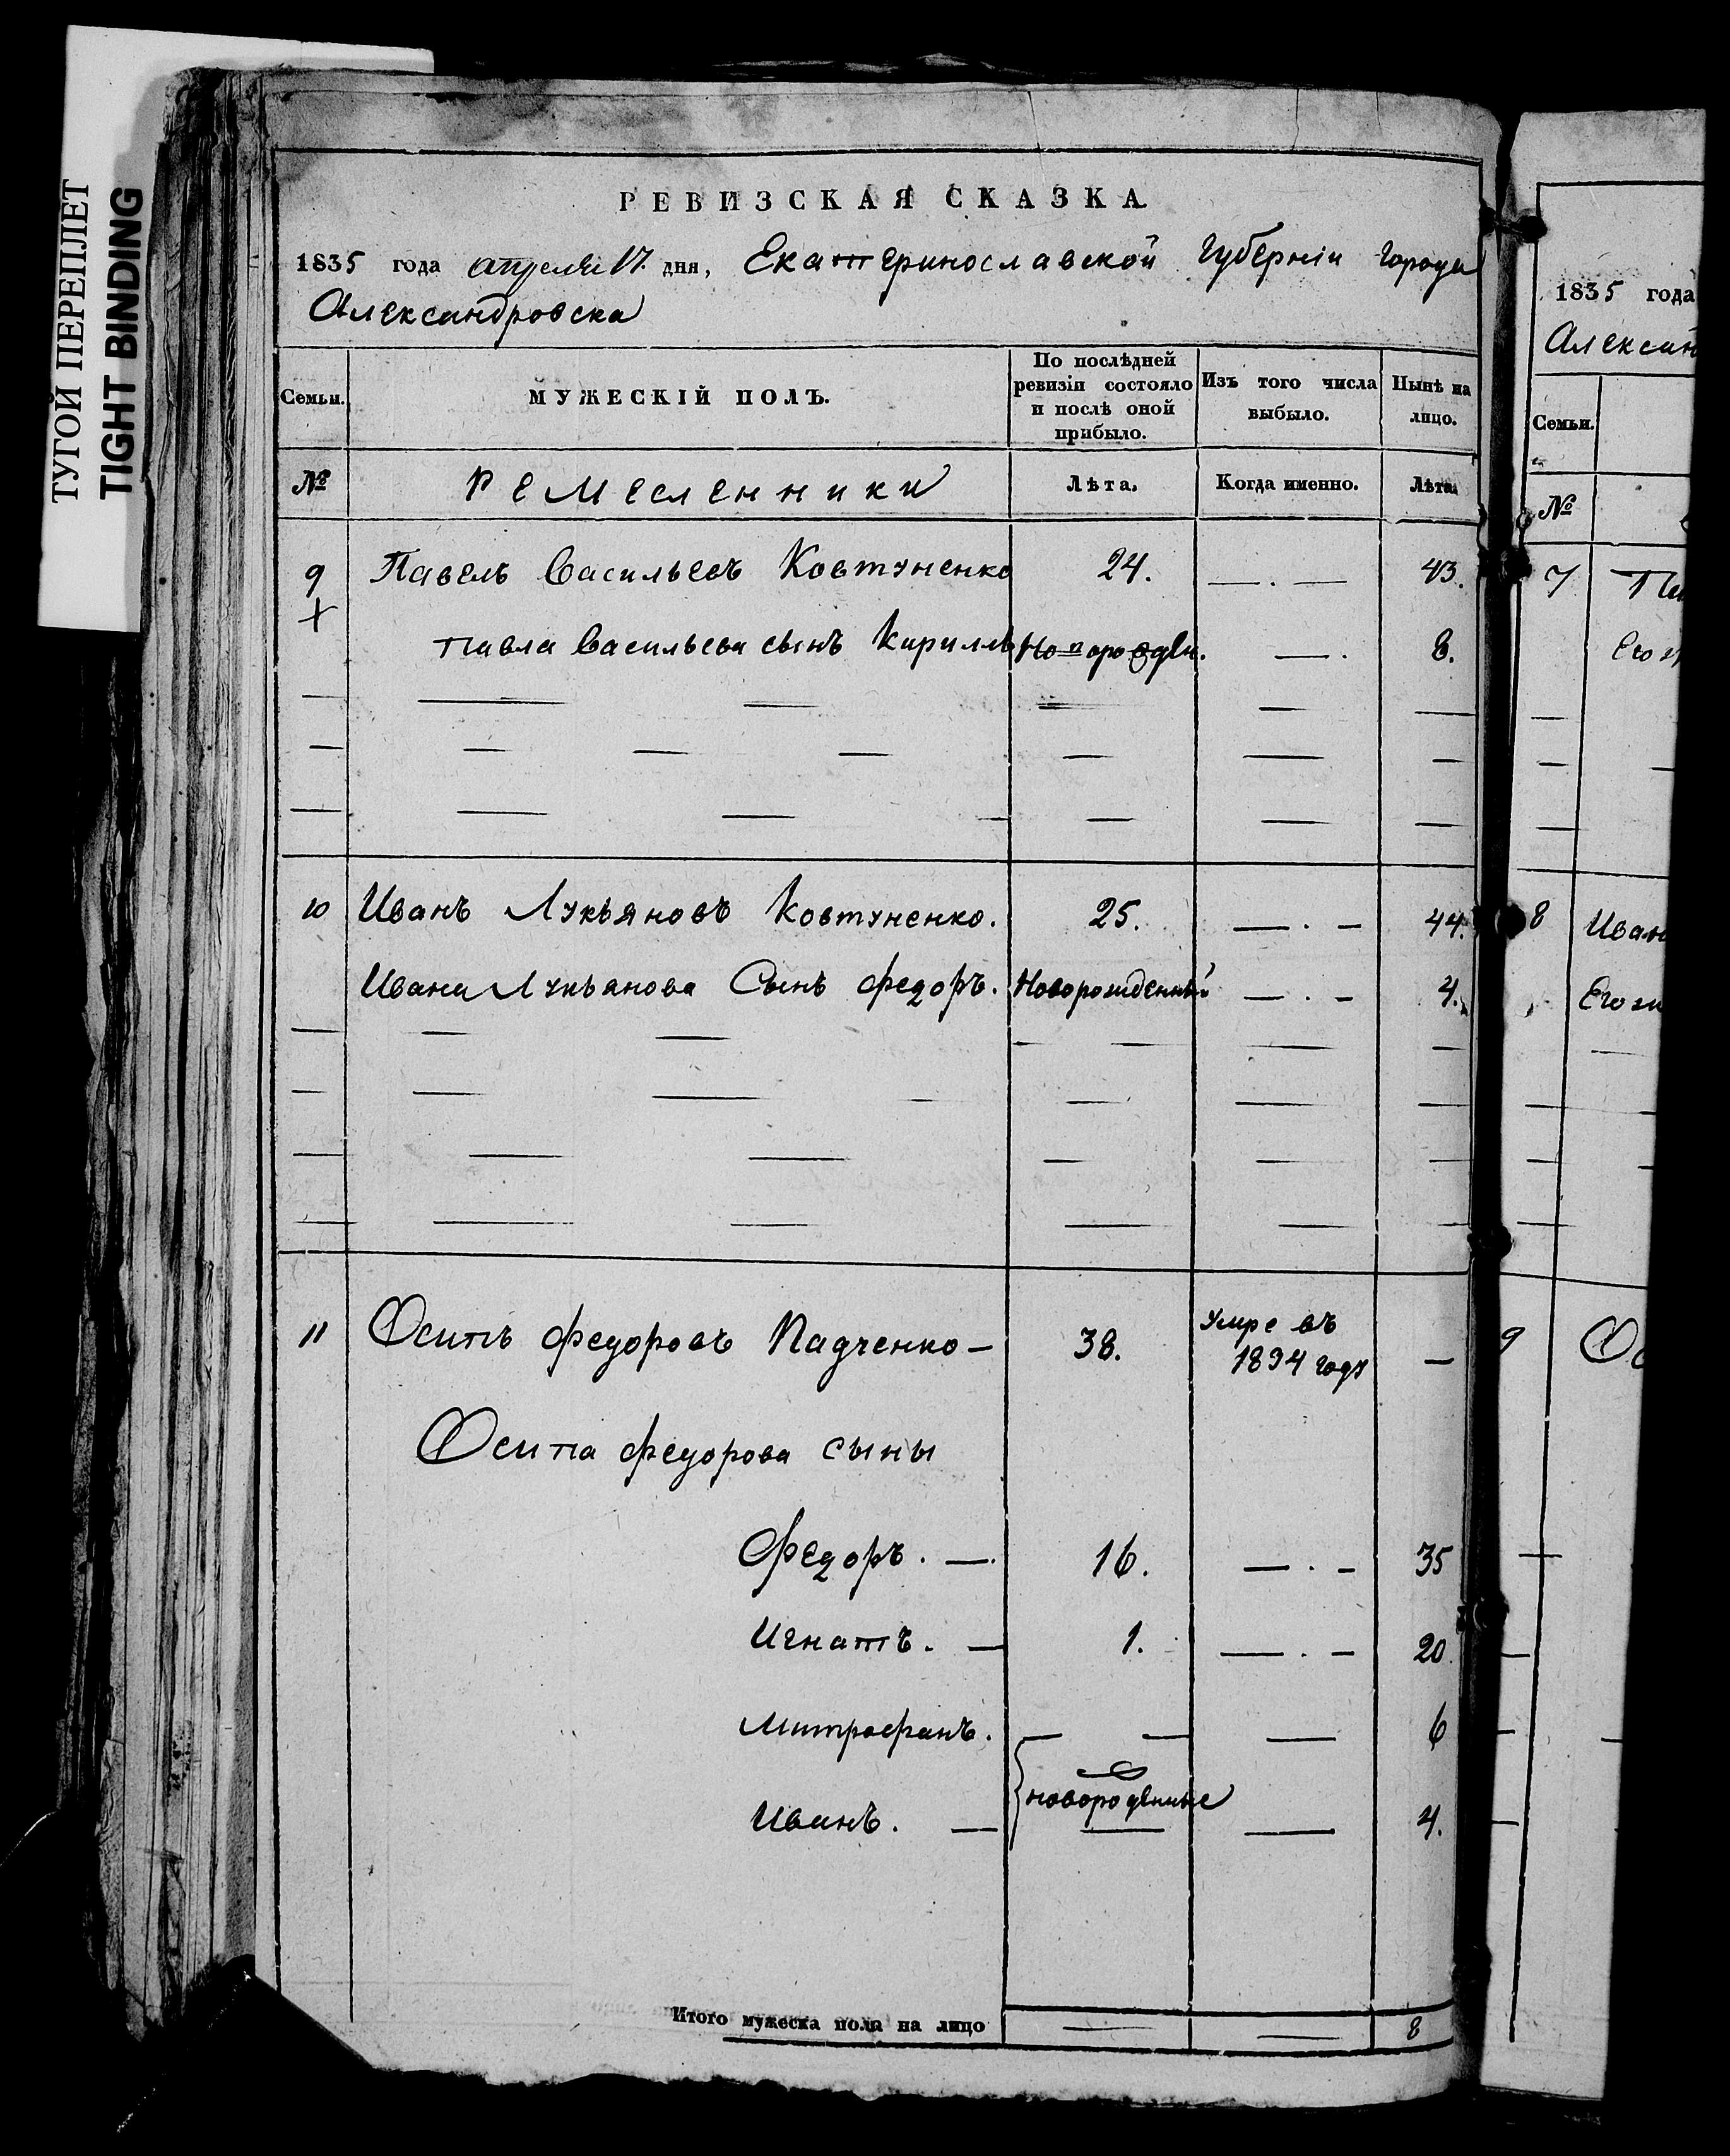 ТУГОЙ ПЕРЕПЛЕТ
TIGHT BINDING
РЕВИЗСКАЯ СКАЗКА
1835 года апреля 17. дня, Екатеринославской Губернiи города
Александровска
Семьи.
МУЖЕСКIЙ ПОЛЪ.
По послѣдней ревизiи состояло и послѣ оной прибыло.
Изъ того числа выбыло.
Нынѣ на лицо.
№ Ремесленники Лѣта. Когда именно. Лѣта.
9 Павелъ Васильевъ Ковтуненко 24. — . — 43.
Павла Васильева сынъ Кириллъ — . 8.
10 Иванъ Лукьяновъ Ковтуненко. 25. — . — 44.
Ивана Лукьянова Сынъ Федоръ. Новорожденный — . — 4.
11 Осипъ Федоровъ Падченко — 38. Умре въ 1834 году —
Осипа Федорова сыны
Федоръ. — 16. — . — 35
Игнатъ. — 1. — . — 20.
Митрофанъ. — — — 6
новорожденные
Иванъ. — — — 4.
Итого мужеска пола на лицо — — 8
1835 года
Алексан
Семьи.
№
7
Его
8 Иван
Его
9 Ос